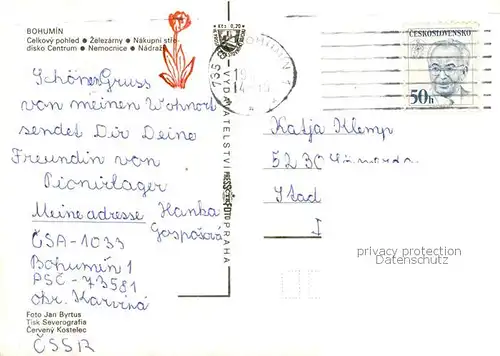 BOHUMÍN
Celkový pohled • Železárny • Nákupní stře-
disko Centrum • Nemocnice • Nádraží
Schönen Gruss
von meinen Wohnort
sendet Dir Deine
Freundin von
Pionirlager
Meine adresse Hanka
Gaspošová
ČSA-1033
Bohumín 1
PSČ-73581
okr. Karviná
Foto Jan Byrtus
Tisk Severografia
Červený Kostelec
ČSSR
Kčs 0,70
VYDAVATELSTVÍ PRESSFOTO PRAHA
735 81 BOHUMÍN 1
ČESKOSLOVENSKO
50h
Katja Klemp
5230
Stad
I
privacy protection
Datenschutz